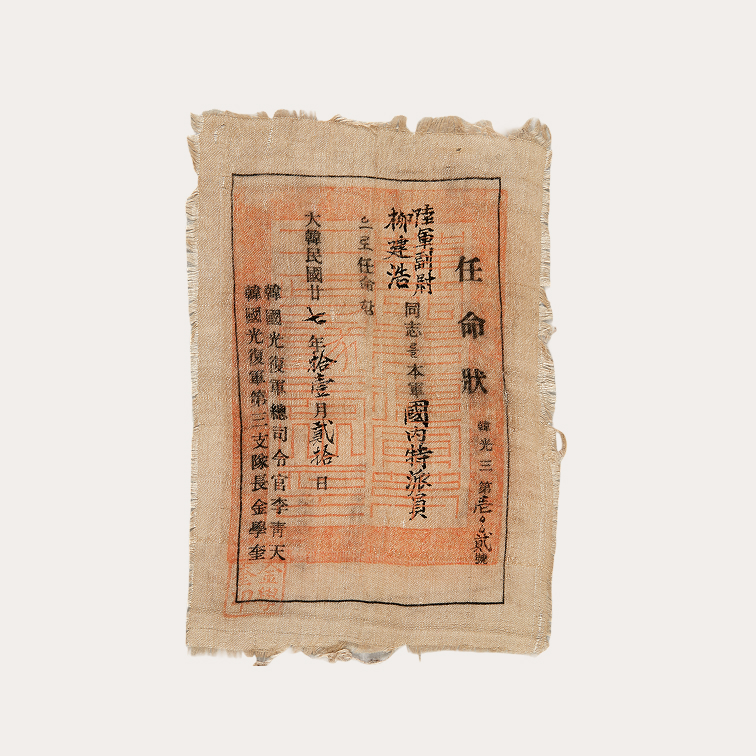 任命狀
韓光三 第壹〇〇貳號
陸軍副尉
柳建浩 同志를 本軍 國內特派員
으로 任命함
大韓民國廿七年拾壹月貳拾日
韓國光復軍總司令官李靑天
韓國光復軍第三支隊長金學奎